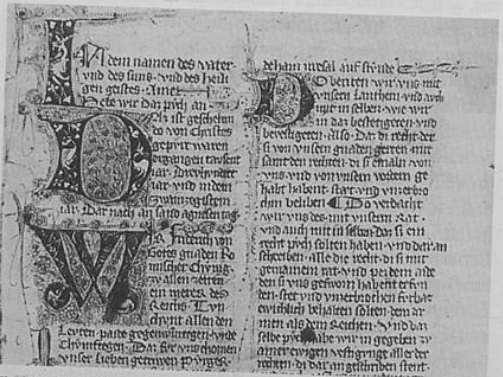 In dem namen des vater
vnd des suns vnd des heili
gen geistes Amen
Hebt wir daz půch an
Daz ist geschehen
do von Christes
gepurt waren
ergangen tausent
iar Drewhundert
iar vnd in dem
Zwainzigistem
iar Dar nach an sand agnesen tag
Wir Fridreich von
Gotes gnaden Ro
mischer Chunig
ze allen zeiten
ein merer des
Reichs Tun
chunt allen den
Leuten paide gegenwurtigen vnde
Chunftegen Daz fur vns chomen
vnser lieben getrewen Purger
Do berieten wir vns mit
vnsern Lantherren vnd auch
mit in selben wie wir
in daz bestetigeten vnd
bevestigeten Also Daz di recht der
si von vnsern gnaden gerten mit
samt den rechten di si emaln von
vns vnd von vnsern vodern ge
habt habent stat vnd vnzerbro
chen beliben Do verdacht
wir vns des mit vnserm Rat
vnd auch mit in selben Daz si ein
recht půch solten haben vnd dar an
schreiben alle die recht di si mit
gemainem rat vnd pei dem aide
den si vns gesworn habent erfun
den stet vnd vnzerbrochen furbaz
ewichlich behalten solten dem ar
men als dem Reichen Vnd daz
selbe půch habe wir in gegeben zu
einer ewigen vestigunge aller der
rechten di dar an geschriben stent